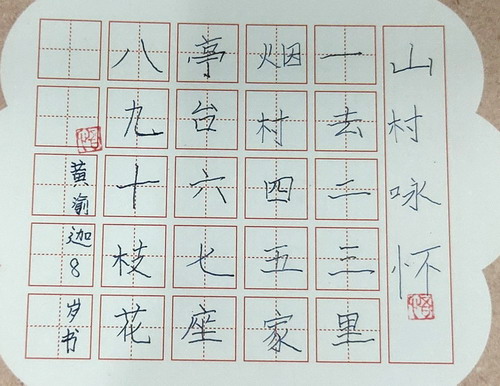 山村咏怀
一去二三里
烟村四五家
亭台六七座
八九十枝花
黄渝迦8岁书